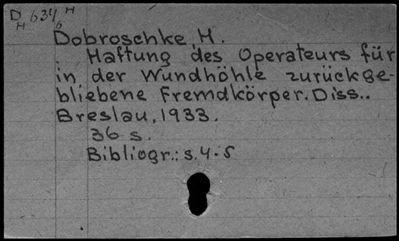 D 634 H
H 6
Dobroschke, H.
Haftung des Operateurs für
in der Wundhöhle zurückge-
bliebene Fremdkörper. Diss..
Breslau, 1933.
36 s.
Bibliogr.: s. 4-5